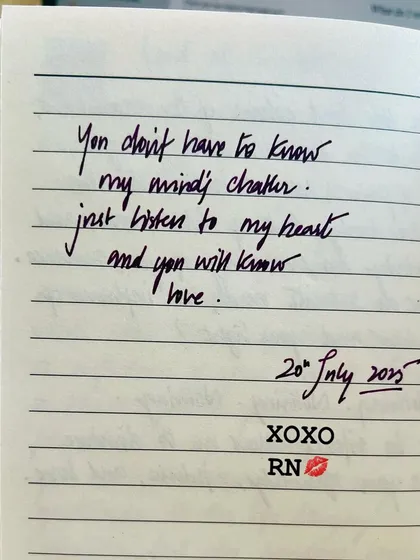 You don't have to know
my mind's chatter.
just listen to my heart
and you will know
love.
20th July 2025
XOXO
RN💋